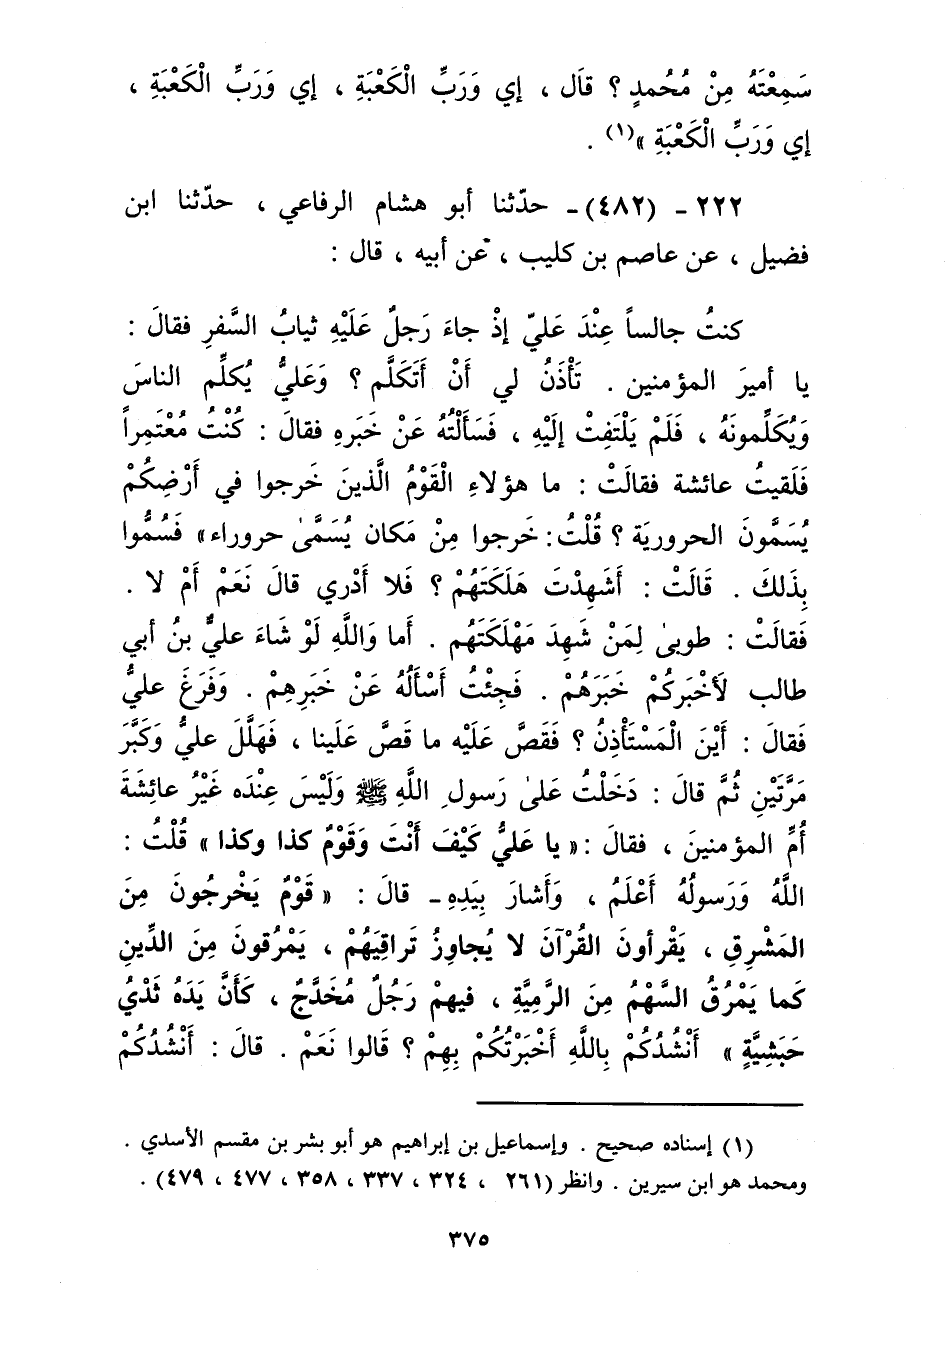 سَمِعْتَهُ مِنْ مُحُمدٍ ؟ قاَل ، إي وَرَبِّ الْكَعْبَةِ ، إي وَرَبِّ الْكَعْبَةِ ،
إي وَرَبِّ الْكَعْبَةِ »(١) .
٢٢٢ ـ (٤٨٢)ـ حدّثنا أبو هشام الرفاعي ، حدّثنا ابن
فضيل ، عن عاصم بن كليب ، عن أبيه ، قال :
كنتُ جالساً عِنْدَ عَليّ إذْ جاءَ رَجلٌ عَلَيْهِ ثيابُ السَّفرِ فقالَ :
يا أميرَ المؤمنين . تَأْذَنُ لي أَنْ أَتَكَلَّم ؟ وَعَليُّ يُكلِّم الناسَ
وَيُكَلِّمونَهُ ، فَلَمْ يَلْتَفِتْ إلَيْهِ ، فَسَأَلْتُهُ عَنْ خَبَرهِ فقالَ : كُنْتُ مُعْتَمِراً
فَلَقيتُ عائشة فقالَتْ : ما هؤلاءِ الْقَوْمُ الَّذينَ خَرجوا في أَرْضِكُمْ
يُسَمَّونَ الحروريَة ؟ قُلْتُ : خَرجوا مِنْ مَكان يُسَمَّىٰ حروراء » فَسُمُّوا
بِذَلكَ . قَالَتْ : أَشَهِدْتَ هَلَكَتَهُمْ ؟ فَلا أَدْري قالَ نَعَمْ أَمْ لا .
فَقالَتْ : طوبىٰ لِمَنْ شَهِدَ مَهْلَكَتَهُم . أَما وَاللَّهِ لَوْ شَاءَ عليٌّ بنُ أبي
طالب لَأَخْبَركُمْ خَبَرَهُمْ . فَجِئْتُ أَسْأَلُهُ عَنْ خَبَرِهِمْ . وَفَرَغَ عليُّ
فَقالَ : أَيْنَ الْمَسْتَأْذِنُ ؟ فَقَصَّ عَلَيْه ما قَصَّ عَلَينا ، فَهَلَّلَ عليُّ وَكَبَّرَ
مَرَّتَيْنِ ثُمَّ قالَ : دَخَلْتُ عَلىٰ رَسول اللَّهِ ﷺ وَلَيْسَ عِنْدَه غَيْرُ عائِشَةَ
أُمِّ المؤمنينَ ، فقالَ :« يا عَليُّ كَيْفَ أَنْتَ وَقَوْمٌ كذا وكذا » قُلْتُ :
اللَّهُ وَرَسولُهُ أَعْلَمُ ، وَأَشارَ بِيَدِهِ ـ قالَ : « قَوْمٌ يَخْرجُونَ مِنَ
المَشْرِقِ ، يَقْرأونَ القُرْآنَ لا يُجاوِزُ تَراقِيَهُمْ ، يَمْرُقونَ مِنَ الدِّينِ
كَما يَمْرُقُ السَّهْمُ مِنَ الرَّمِيَّةِ ، فيهمْ رَجُلٌ مُخَدَّجٌ ، كَأَنَّ يَدَهُ ثَدْيُ
حَبَشِيَّةٍ » أَنْشُدُكُمْ بِاللَّهِ أَخْبَرْتُكُمْ بِهِمْ ؟ قَالوا نَعَمْ . قالَ : أَنْشُدُكُمْ
(١) إسناده صحيح . وإسماعيل بن إبراهيم هو أبو بشر بن مقسم الأسدي .
ومحمد هو ابن سيرين . وانظر (٢٦١ ، ٣٢٤ ، ٣٣٧ ، ٣٥٨ ، ٤٧٧ ، ٤٧٩) .
٣٧٥